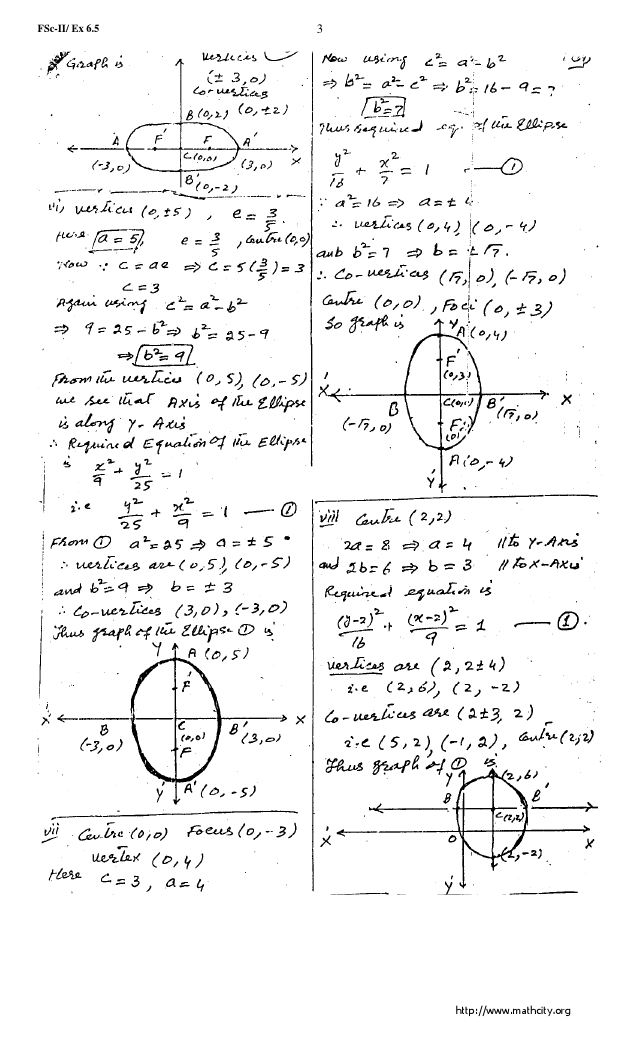 FSc-II/ Ex 6.5
3
Graph is
Vertices
(± 3, 0)
Co-vertices
B(0,2) (0, ±2)
A F' F A'
C(0,0)
(-3,0) (3,0) X
B' (0,-2)
vi, vertices (0, ±5) , e = 3/5.
Here a = 5, e = 3/5 , Centre (0,0)
Now ∵ c = ae ⇒ c = 5(3/5) = 3
c = 3
Again using c² = a² - b²
⇒ 9 = 25 - b² ⇒ b² = 25 - 9
⇒ b² = 9
From the vertices (0, 5), (0, -5)
we see that Axis of the Ellipse
is along Y-Axis
∴ Required Equation of the Ellipse
is x²/9 + y²/25 = 1
i.e y²/25 + x²/9 = 1 — ①
From ① a² = 25 ⇒ a = ± 5
∴ vertices are (0, 5), (0, -5)
and b² = 9 ⇒ b = ± 3
∴ Co-vertices (3, 0), (-3, 0)
Thus graph of the Ellipse ① is
Y A (0, 5)
F'
X' B C B' X
(-3, 0) (0,0) (3, 0)
F
Y' A' (0, -5)
vii Centre (0,0) Focus (0, -3)
vertex (0, 4)
Here c = 3 , a = 4
Now using c² = a² - b²
⇒ b² = a² - c² ⇒ b² = 16 - 9 = 7
b² = 7
Thus required eq. of the Ellipse
y²/16 + x²/7 = 1 — ①
∵ a² = 16 ⇒ a = ± 4
∴ vertices (0, 4), (0, -4)
and b² = 7 ⇒ b = ± √7.
∴ Co-vertices (√7, 0), (-√7, 0)
Centre (0,0) , Foci (0, ± 3)
So graph is Y A (0, 4)
F'
(0,3)
X' C(0,0) X
B B' (√7, 0)
(-√7, 0) F
A (0, -4)
Y'
viii Centre (2, 2)
2a = 8 ⇒ a = 4 // to Y-Axis
and 2b = 6 ⇒ b = 3 // to X-Axis
Required equation is
(y-2)²/16 + (x-2)²/9 = 1 — ①.
vertices are (2, 2±4)
i.e (2, 6), (2, -2)
Co-vertices are (2±3, 2)
i.e (5, 2), (-1, 2), Centre (2,2)
Thus graph of ① is
Y (2, 6)
B B'
C(2,2)
X' O X
(2, -2)
Y'
http://www.mathcity.org